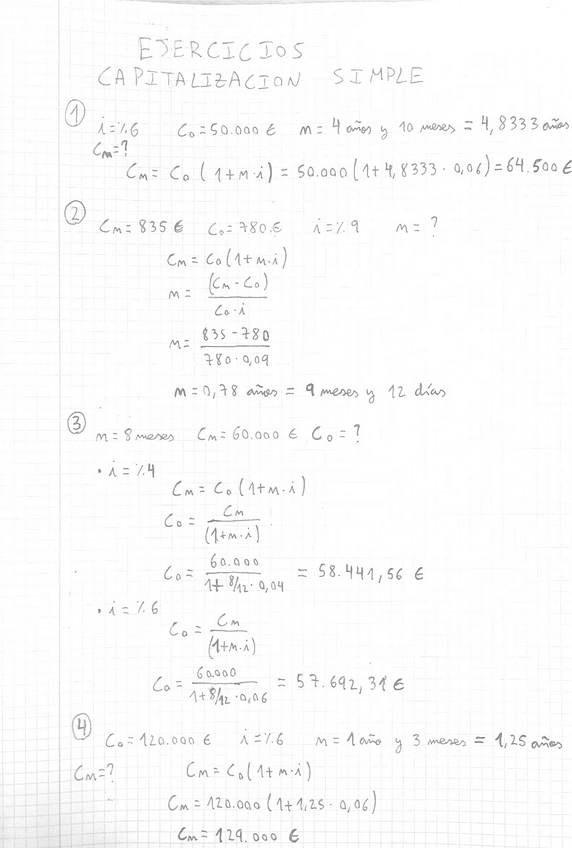 EJERCICIOS
CAPITALIZACION SIMPLE
① i=%6 C₀=50.000 € n= 4 años y 10 meses = 4,8333 años
Cn=?
Cn = C₀ (1+n·i) = 50.000 (1+4,8333·0,06) = 64.500 €
② Cn=835 € C₀=780 € i=%9 n=?
Cn = C₀(1+n·i)
n = (Cn-C₀) / C₀·i
n = 835-780 / 780·0,09
n=0,78 años = 9 meses y 12 días
③ n=8 meses Cn=60.000 € C₀=?
• i=%4
Cn = C₀(1+n·i)
C₀ = Cn / (1+n·i)
C₀ = 60.000 / 1+8/12·0,04 = 58.441,56 €
• i=%6
C₀ = Cn / (1+n·i)
C₀ = 60.000 / 1+8/12·0,06 = 57.692,31 €
④ C₀=120.000 € i=%6 n=1 año y 3 meses = 1,25 años
Cn=? Cn = C₀(1+n·i)
Cn = 120.000 (1+1,25·0,06)
Cn = 129.000 €